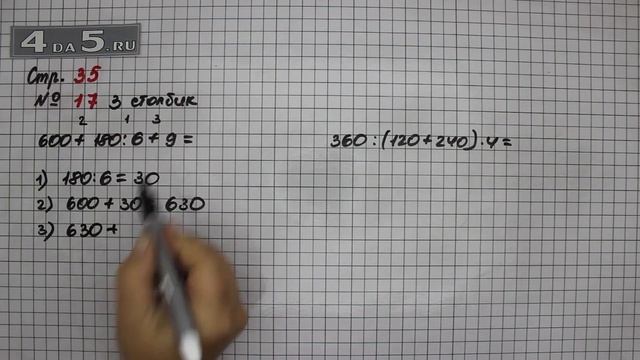 4 DA 5.RU
Стр. 35
№ 17 3 столбик
2 1 3
600 + 180 : 6 + 9 =
1) 180 : 6 = 30
2) 600 + 30 630
3) 630 +
360 : (120 + 240) · 4 =